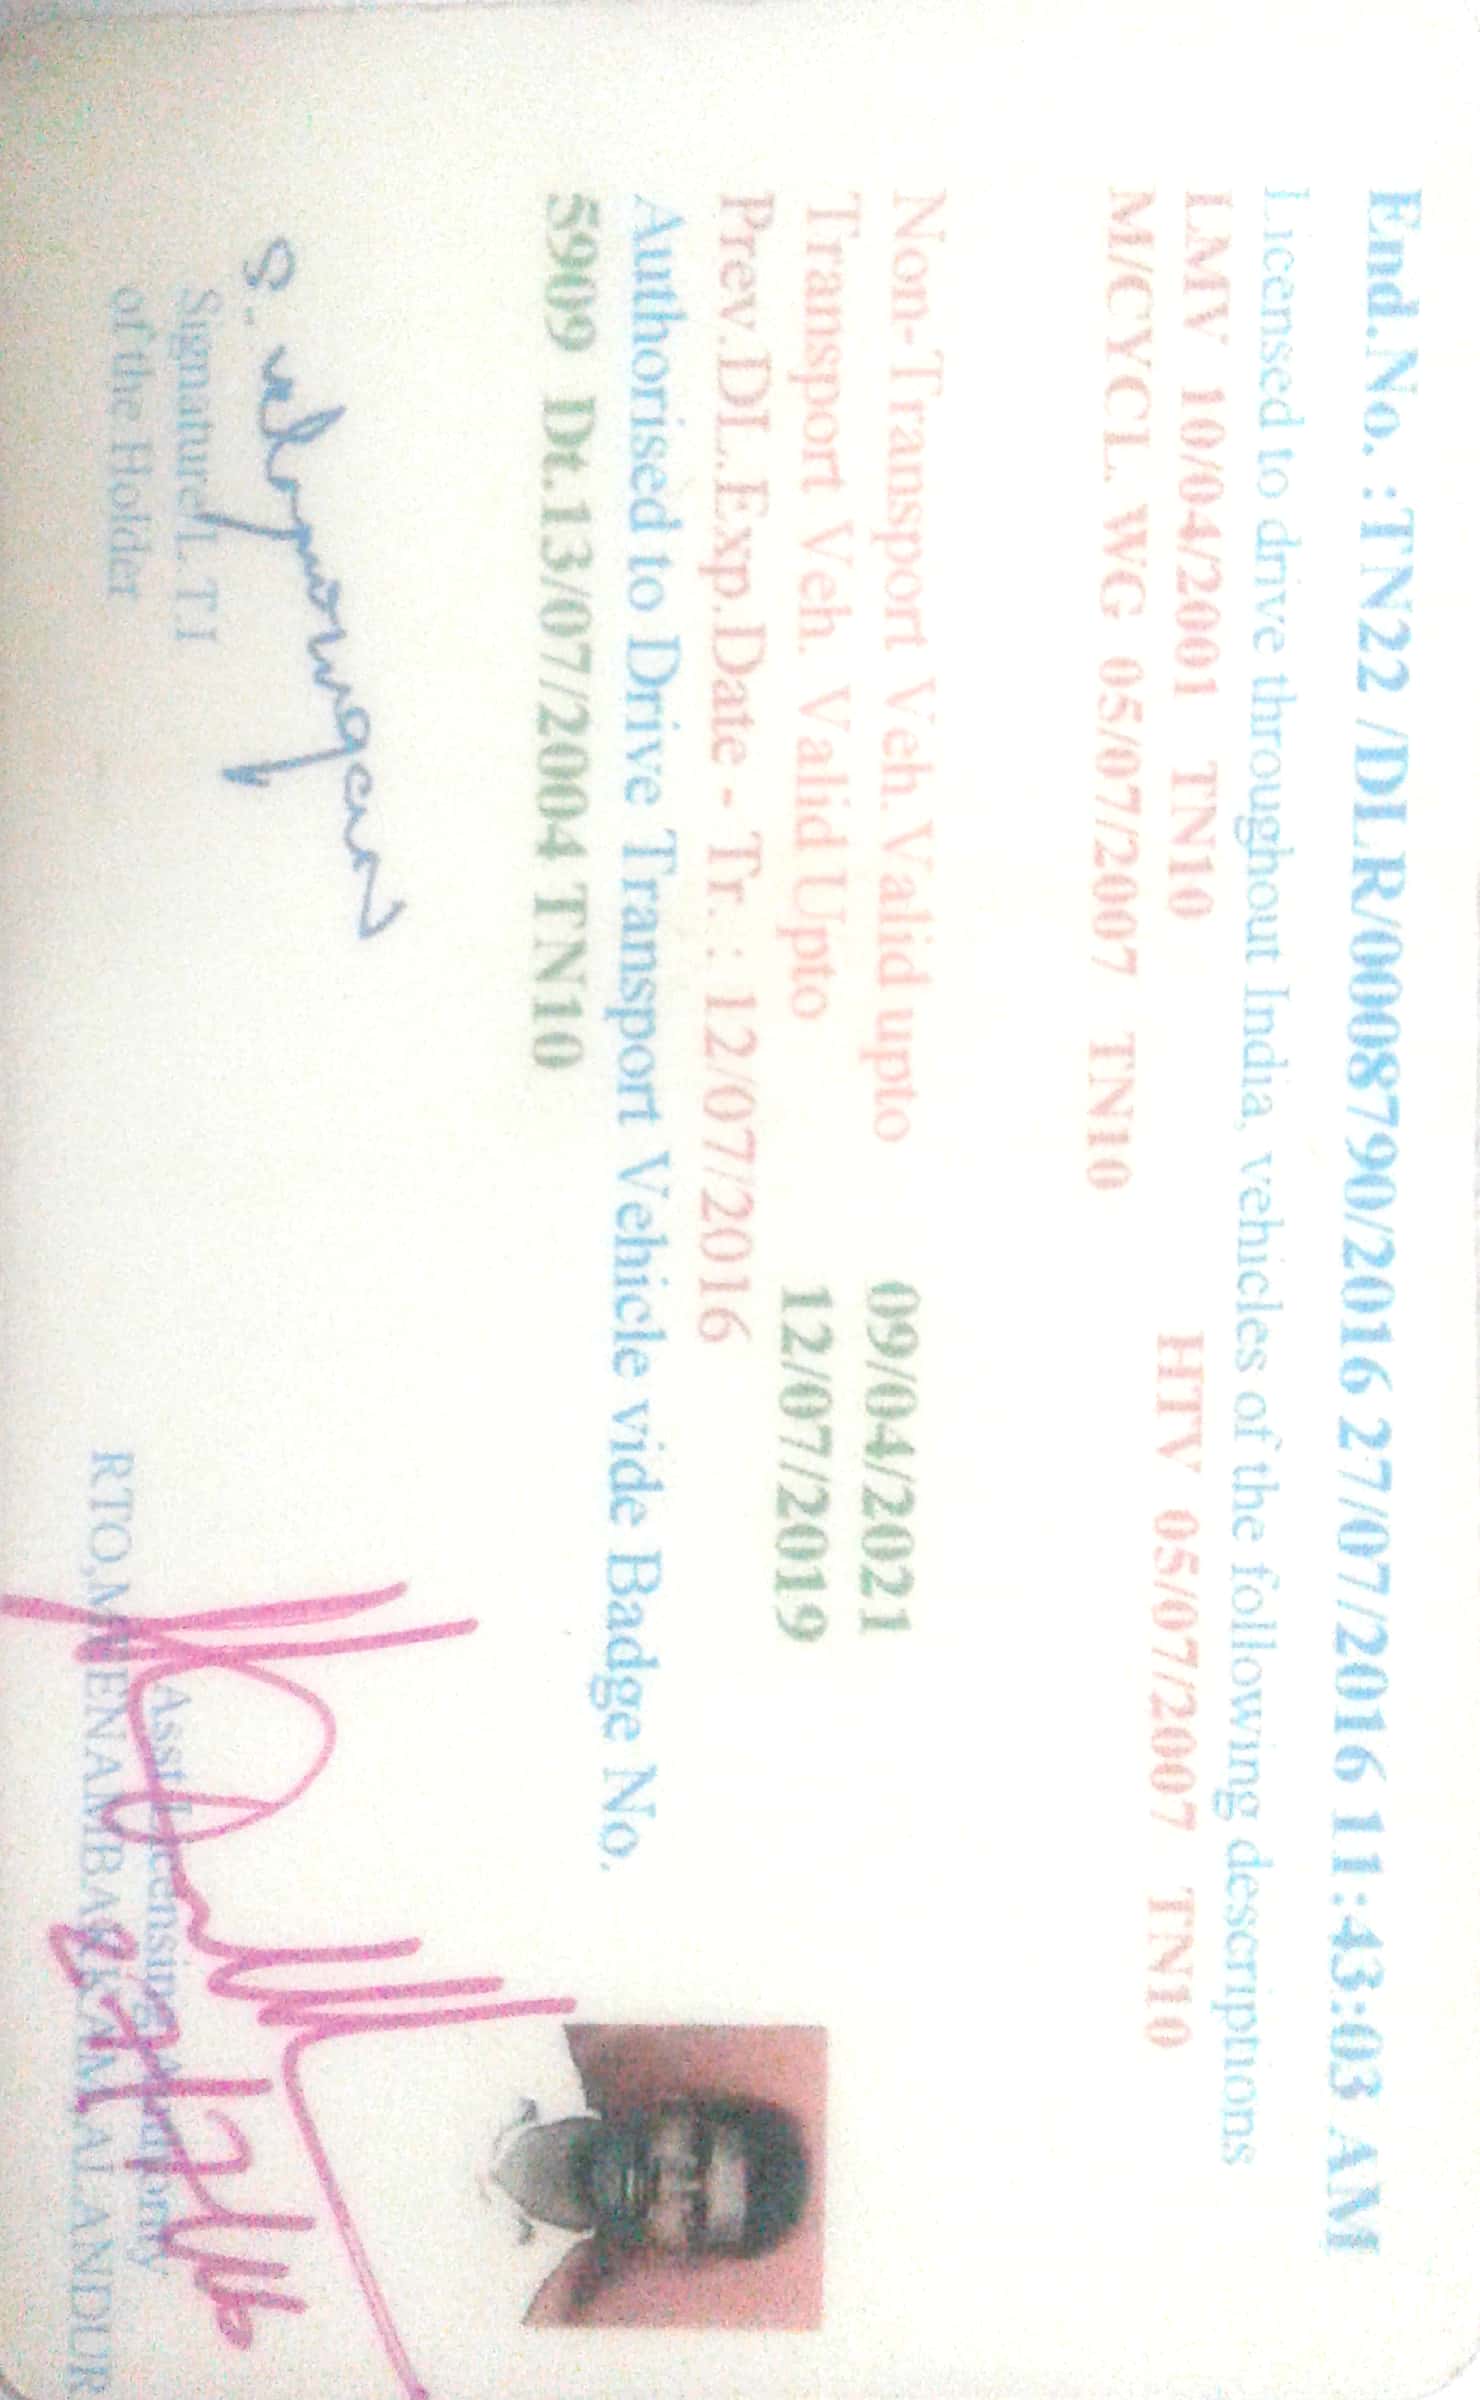 End.No. :TN22 /DLR/0008790/2016 27/07/2016 11:43:03 AM
Licensed to drive throughout India, vehicles of the following descriptions
LMV 10/04/2001 TN10 HTV 05/07/2007 TN10
M/CYCL. WG 05/07/2007 TN10
Non-Transport Veh.Valid upto 09/04/2021
Transport Veh. Valid Upto 12/07/2019
Prev.DL.Exp.Date - Tr. : 12/07/2016
Authorised to Drive Transport Vehicle vide Badge No.
5909 Dt.13/07/2004 TN10
S. velmurugan
Signature/L.T.I
of the Holder
Asst Licensing Authority
RTO,MEENAMBAKKAM,ALANDUR